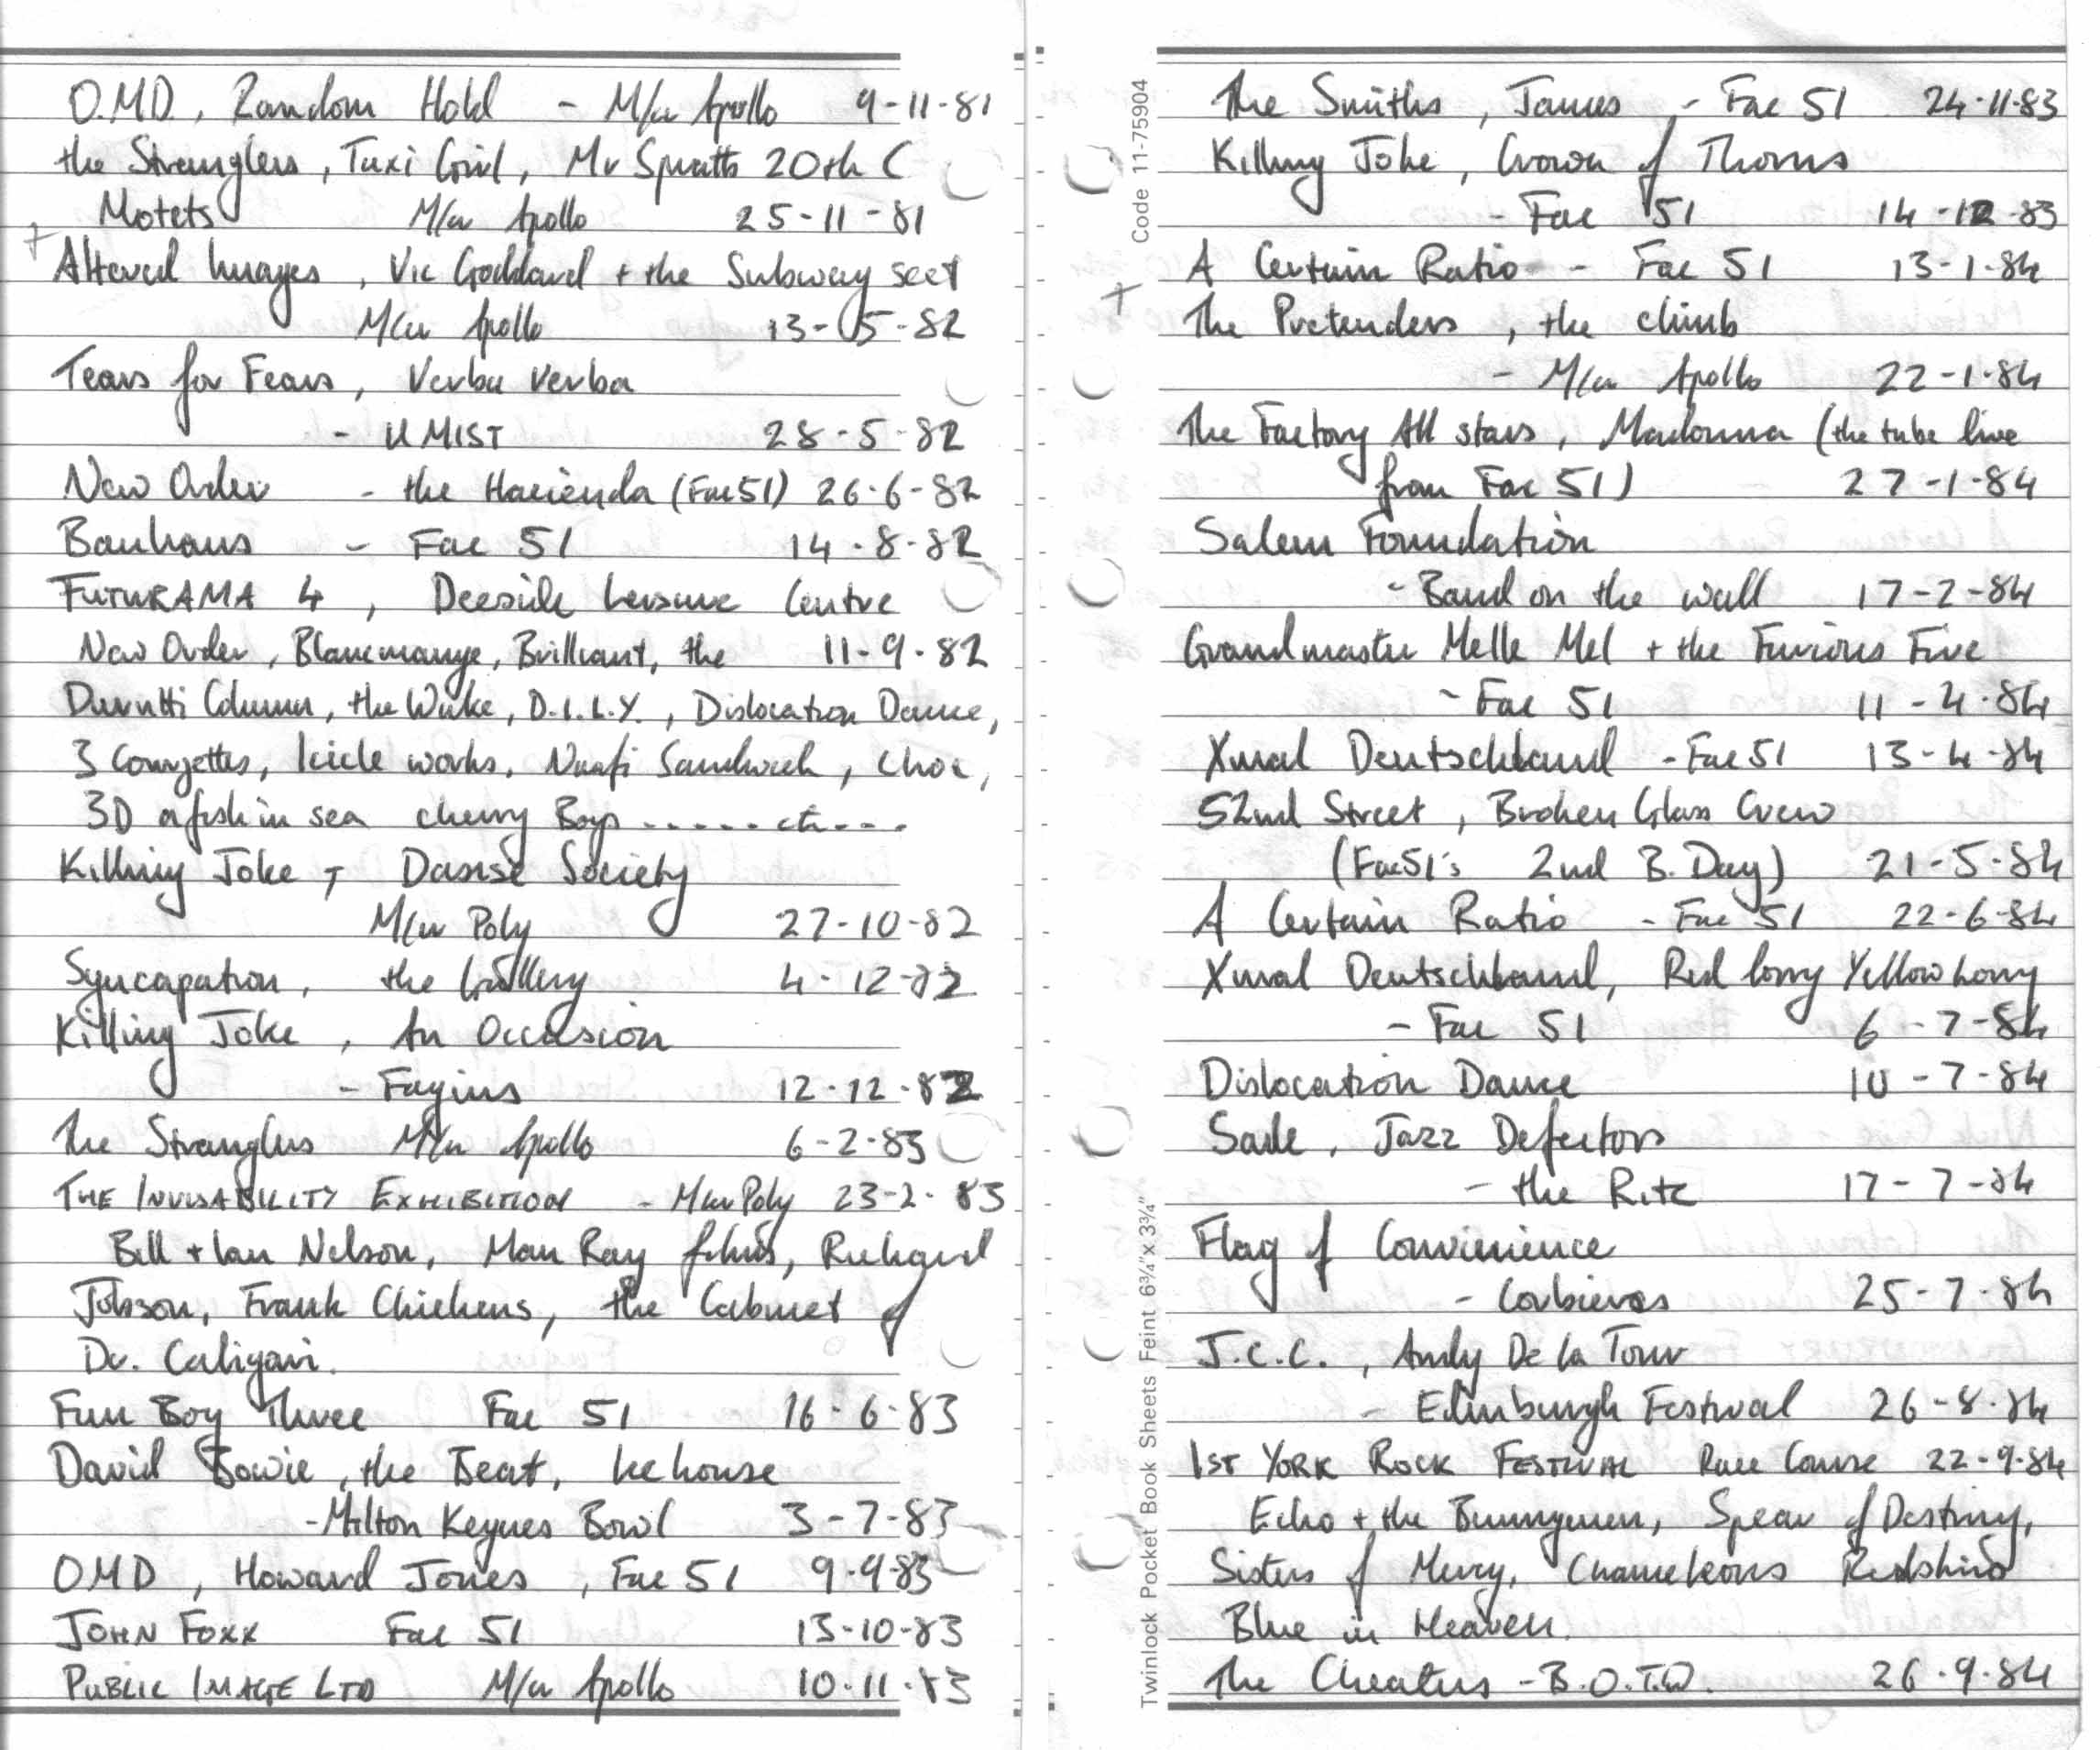 O.M.D., Random Hold - M/cr Apollo 9-11-81
the Stranglers, Taxi Girl, Mr Spratts 20th C
Motets M/cr Apollo 25-11-81
+
Altered Images, Vic Goddard + the Subway sect
M/cr Apollo 13-5-82
Tears for Fears, Verba Verba
- UMIST 28-5-82
New Order - the Hacienda (Fac51) 26-6-82
Bauhaus - Fac 51 14-8-82
FUTURAMA 4, Deeside Leisure Centre
New Order, Blancmange, Brilliant, the 11-9-82
Durutti Column, the Wake, D.I.L.Y., Dislocation Dance,
3 Courgettes, Icicle works, Naafi Sandwich, Choc,
3D a fish in sea cherry Boys ..... etc....
Killing Joke, Danse Society
M/cr Poly 27-10-82
Syncapation, the Gallery 4-12-82
Killing Joke, An Occasion
- Fagins 12-12-82
The Stranglers M/cr Apollo 6-2-83
THE INVISABILITY EXHIBITION - M/cr Poly 23-2-83
Bill + Ian Nelson, Man Ray films, Richard
Jobson, Frank Chickens, the Cabinet of
Dr. Caligari.
Fun Boy Three Fac 51 16-6-83
David Bowie, the Beat, Icehouse
- Milton Keynes Bowl 3-7-83
OMD, Howard Jones, Fac 51 9-9-83
JOHN FOXX Fac 51 13-10-83
PUBLIC IMAGE LTD M/cr Apollo 10-11-83
Code 11-75904
Twinlock Pocket Book Sheets Feint 6¾" x 3¾"
The Smiths, James - Fac 51 24-11-83
Killing Joke, Crown of Thorns
- Fac 51 14-12-83
A Certain Ratio - Fac 51 13-1-84
+
The Pretenders, the climb
- M/cr Apollo 22-1-84
The Factory All stars, Madonna (the tube live
from Fac 51) 27-1-84
Salem Foundation
- Band on the wall 17-2-84
Grandmaster Melle Mel + the Furious Five
- Fac 51 11-4-84
Xmal Deutschland - Fac 51 13-4-84
52nd Street, Broken Glass Crew
(Fac51's 2nd B.Day) 21-5-84
A Certain Ratio - Fac 51 22-6-84
Xmal Deutschland, Red lorry Yellow Lorry
- Fac 51 6-7-84
Dislocation Dance 10-7-84
Sade, Jazz Defectors
- the Ritz 17-7-84
Flag of Convinience
- Corbieres 25-7-84
J.C.C., Andy De la Tour
- Edinburgh Festival 26-8-84
1ST YORK ROCK FESTIVAL Race Course 22-9-84
Echo + the Bunnymen, Spear of Destiny,
Sisters of Mercy, Chameleons Redskins
Blue in Heaven.
The Cheaters - B.O.T.W. 26-9-84